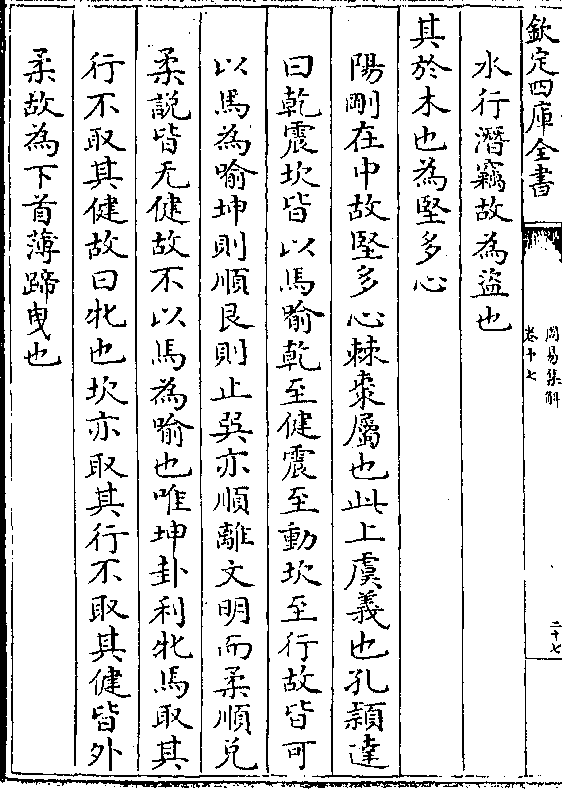 欽定四庫全書
周易集解
卷十七
二十七
水行潛竊故為盜也
其於木也為堅多心
陽剛在中故堅多心棘棗屬也此上虞義也孔穎達
曰乾震坎皆以馬喻乾至健震至動坎至行故皆可
以馬為喻坤則順艮則止巽亦順離文明而柔順兌
柔說皆无健故不以馬為喻也唯坤卦利牝馬取其
行不取其健故曰牝也坎亦取其行不取其健皆外
柔故為下首薄蹄曳也